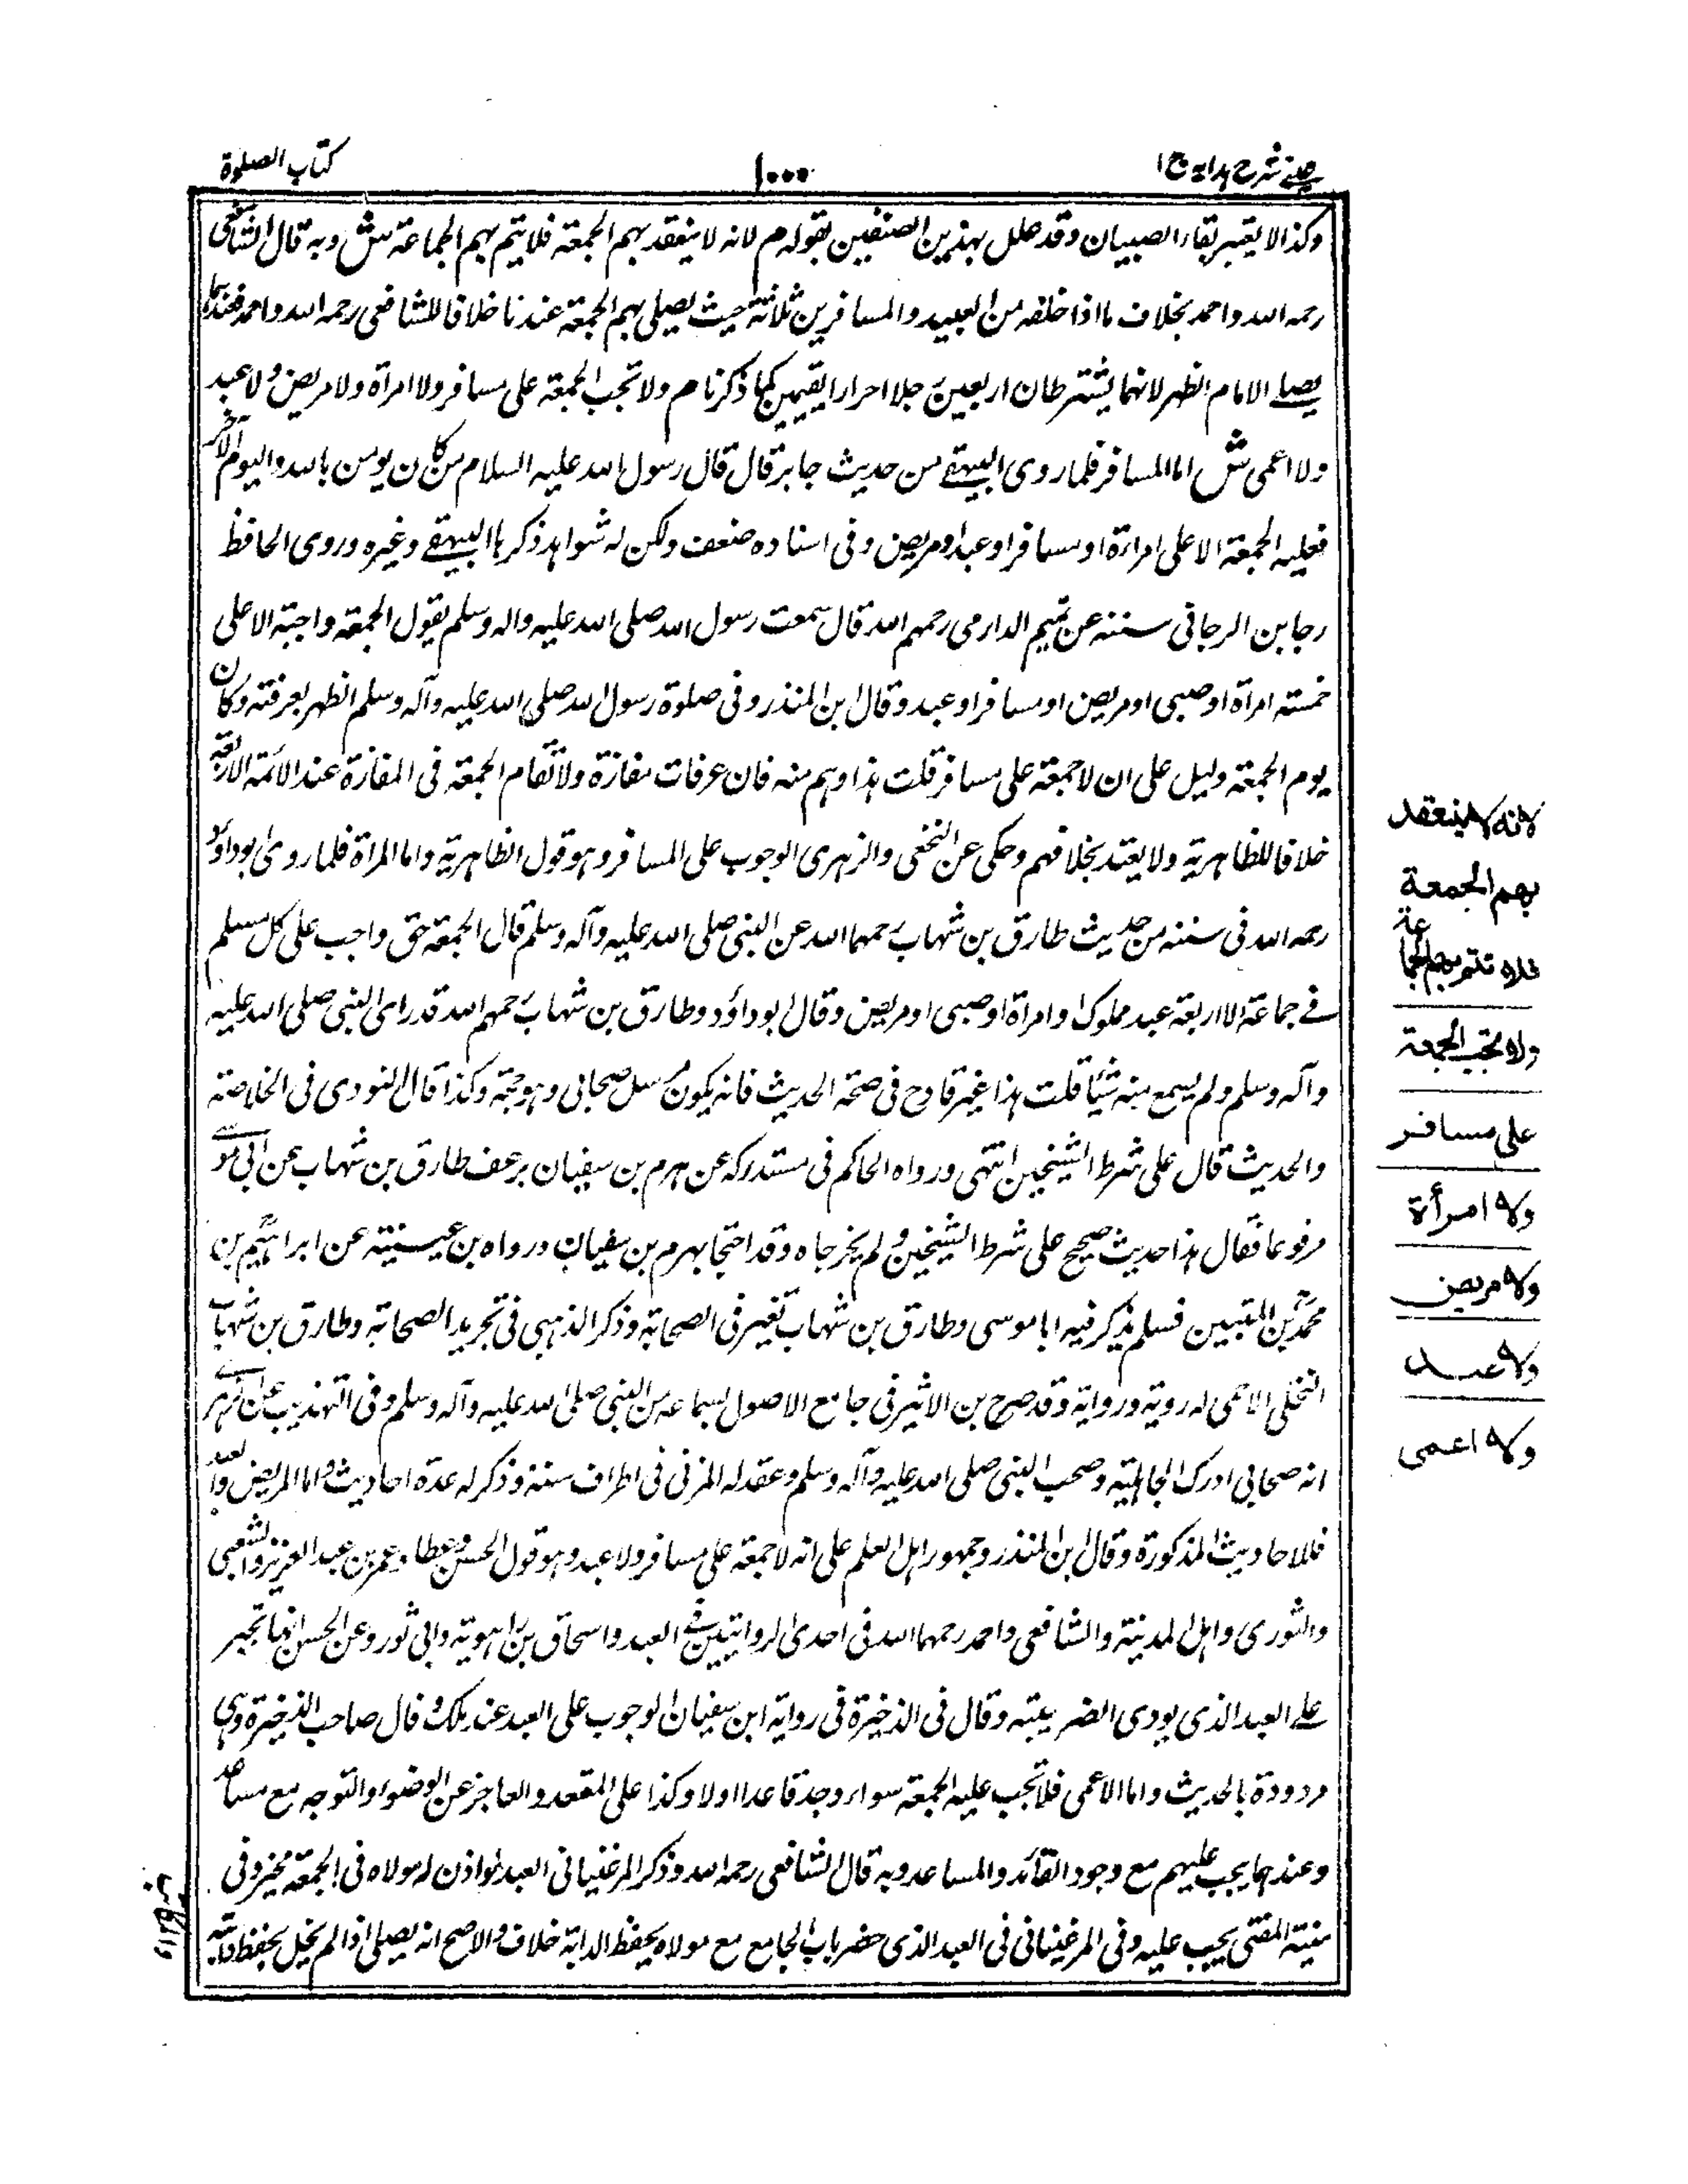 عینی شرح هدایه ج ۱
۱۰۰۰
کتاب الصلوة
وکذا لا یعتبر بقاء الصبیان وقد علل بہذین الصنفین بقوله م لانه لا ینعقد بہم الجمعة فلا یتم بہم الجماعة ش وبه قال الشافعی
رحمه الله واحمد بخلاف ما اذا خلفه من العبید والمسافرین ثلاثة حیث یصلی بہم الجمعة عندنا خلافا للشافعی رحمه الله واحمد فعندہما
یصلے الامام الظہر لانہما یشترطان اربعین رجلا احرارا مقیمین کما ذکرنا م ولا تجب الجمعة علی مسافر ولا امرأة ولا مریض ولا عبد
ولا اعمی ش اما المسافر فلما روی البیہقے من حدیث جابر قال قال رسول الله علیه السلام من کان یومن بالله والیوم الآخر
فعلیه الجمعة الا علی امراءة او مسافر او عبد او مریض وفی اسناده ضعف ولکن له شواہد ذکرہا البیہقے وغیره وروی الحافظ
رجا بن الرجا فی سننه عن تمیم الدارمی رحمهم الله قال سمعت رسول الله صلی الله علیه واله وسلم یقول الجمعة واجبة الا علی
خمسة امرأة او صبی او مریض او مسافر او عبد وقال ابن المنذر وفی صلوة رسول الله صلی الله علیه وآله وسلم الظہر بعرفة وکان
یوم الجمعة دلیل علی ان لا جمعة علی مسافر قلت ہذا وہم منه فان عرفات مفازة ولا تقام الجمعة فی المفازة عند الائمة الاربعة
خلافا للظاہریة ولا یعتد بخلافہم وحکی عن النخعی والزہری الوجوب علی المسافر وہو قول الظاہریة واما المراة فلما روی ابو داود
رحمه الله فی سننه من حدیث طارق بن شہاب رحمهما الله عن النبی صلی الله علیه وآله وسلم قال الجمعة حق واجب علی کل مسلم
فے جماعة الا اربعة عبد مملوک او امراة او صبی او مریض وقال ابو داؤد وطارق بن شہاب رحمهم الله قد رای النبی صلی الله علیه
وآله وسلم ولم یسمع منه شیئا قلت ہذا غیر قادح فی صحة الحدیث فانه یکون مرسل صحابی وہو حجة وکذا قال النووی فی الخلاصة
والحدیث قال علی شرط الشیخین انتہی ورواه الحاکم فی مستدرکه عن ہرم بن سفیان طارق بن شہاب عن ابی موسے
مرفوعا فقال ہذا حدیث صحیح علی شرط الشیخین ولم یخرجاه وقد احتجا بہرم بن سفیان ورواه بن عیینة عن ابراہیم بن
محمد بن المتبین فسلم یذکر فیه ابا موسی وطارق بن شہاب فی الصحابة وذکر الذہبی فی تجرید الصحابة وطارق بن شہاب
له رویة وروایة وقد صرح بن الاثیر فی جامع الاصول بسماعه من النبی صلی الله علیه وآله وسلم وفی التہذیب
انه صحابی ادرک الجاہلیة وصحب النبی صلی الله علیه وآله وسلم وعقد له المزنی فی اطراف سننه وذکر له عدة احادیث واما المریض والعبد
فللاحادیث المذکورة وقال ابن المنذر وجمہور اہل العلم علی انه لا جمعة علی مسافر ولا عبد وہو قول الحسن وعطا وعمر بن عبد العزیز والشعبی
والثوری واہل المدینة والشافعی واحمد رحمهما الله فی احدی الروایتین فے العبد واسحاق بن راہویة وابی ثور وعن الحسن انہا تجب
علے العبد الذی یودی الضریبة وقال فی الذخیرة فی روایة ابن سفیان الوجوب علی العبد عند مالک وقال صاحب الذخیرة وہی
مردودة بالحدیث واما الاعمی فلا تجب علیه الجمعة سواء وجد قاعدا اولا وکذا علی المقعد والعاجز عن الوضوء والتوجه مع مساعد
وعندہما یجب علیہم مع وجود القائد والمساعد وبه قال الشافعی رحمه الله وذکر المرغینانی العبد لو اذن له مولاه فی الجمعة یخیر وفی
منیة المفتی یجب علیه وفی المرغینانی فی العبد الذی حضر باب الجامع مع مولاه یحفظ الدابة خلاف والاصح انه یصلی اذا لم یخل بحفظ دابته
لانه لا ینعقد
بهم الجمعة
فلا تتم بهم الجماعة
ولا تجب الجمعة
علی مسافر
ولا امرأة
ولا مریض
ولا عبد
ولا اعمی